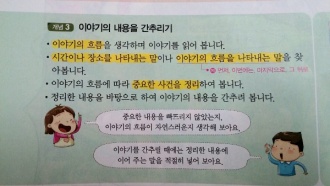 개념 3 이야기의 내용을 간추리기
• 이야기의 흐름을 생각하며 이야기를 읽어 봅니다.
• 시간이나 장소를 나타내는 말이나 이야기의 흐름을 나타내는 말을 찾
아봅니다.
• 이야기의 흐름에 따라 중요한 사건을 정리하여 봅니다.
• 정리한 내용을 바탕으로 하여 이야기의 내용을 간추려 봅니다.
중요한 내용을 빠뜨리지 않았는지,
이야기의 흐름이 자연스러운지 생각해 보아요.
이야기를 간추릴 때에는 정리한 내용에
이어 주는 말을 적절히 넣어 보아요.